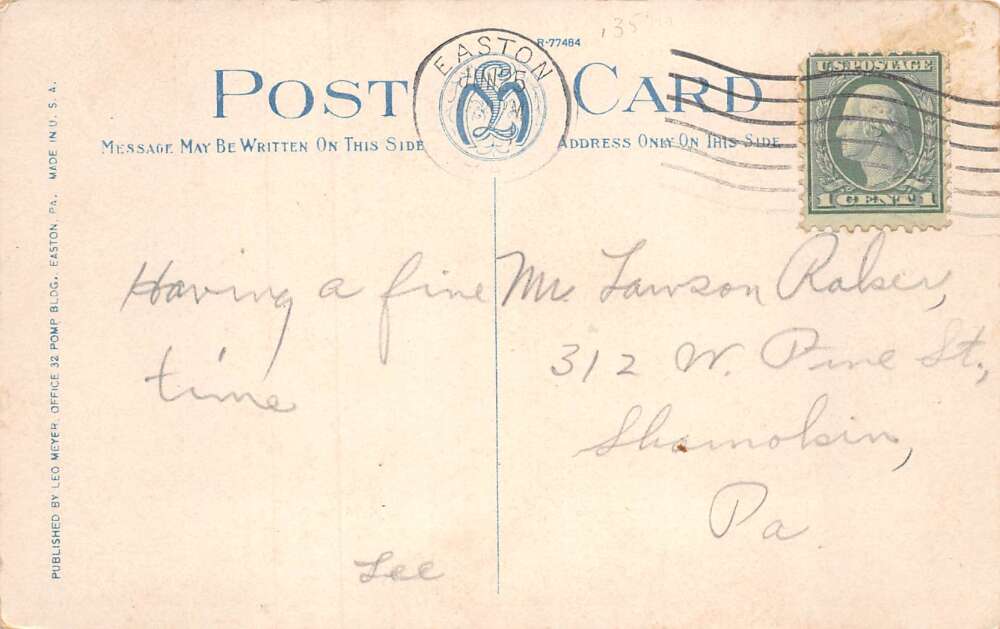 135
R-77484
EASTON
JUN 5
POST CARD
MESSAGE MAY BE WRITTEN ON THIS SIDE
ADDRESS ONLY ON THIS SIDE
U.S. POSTAGE
1 CENT 1
Having a fine
time
Lee
Mr. Lawson Raker,
312 W. Pine St.,
Shamokin,
Pa
PUBLISHED BY LEO MEYER, OFFICE 32 POMP BLDG. EASTON, PA. MADE IN U. S. A.